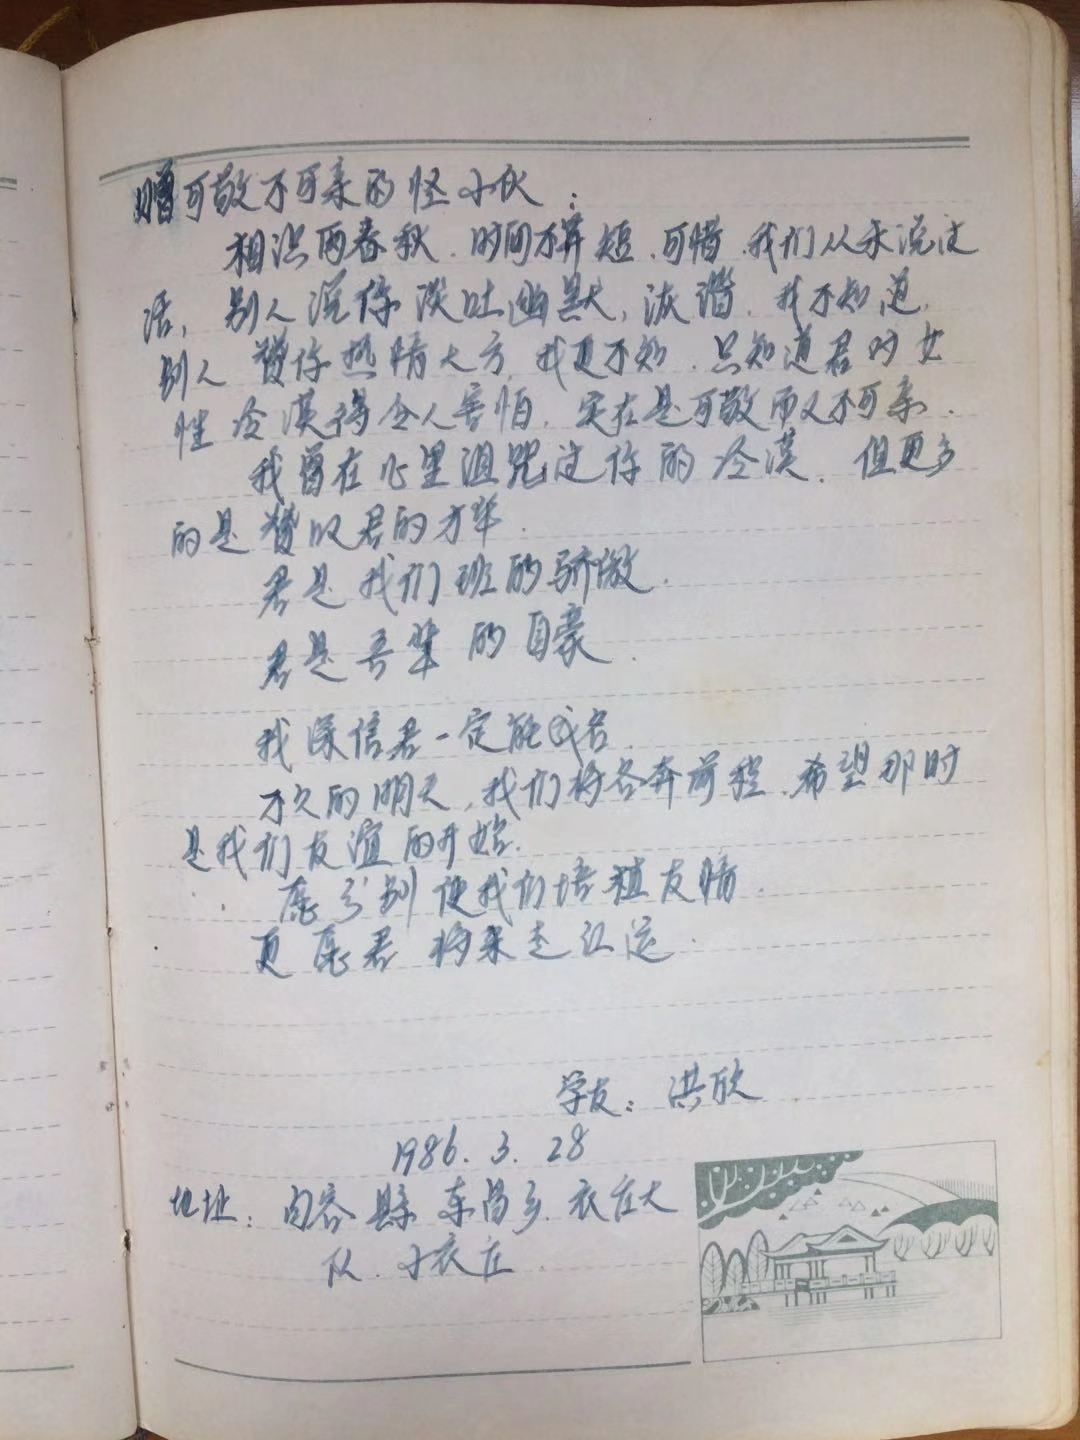 赠可敬不可亲的怪小伙：
相识两春秋.时间不算短.可惜.我们从未说过
话，别人说你谈吐幽默，诙谐.我不知道.
别人赞你热情大方，我更不知.只知道君对女
性冷漠得令人害怕.实在是可敬而又不可亲.
我曾在心里诅咒过你的冷漠.但更多
的是赞叹君的才华.
君是我们班的骄傲.
君是吾辈的自豪.
我深信君一定能成名.
不久的明天，我们将各奔前程.希望那时
是我们友谊的开始.
愿分别使我们培植友情.
更愿君将来走红运.
学友：洪欣
1986.3.28
地址：句容县东昌乡.衣庄大
队.小衣庄